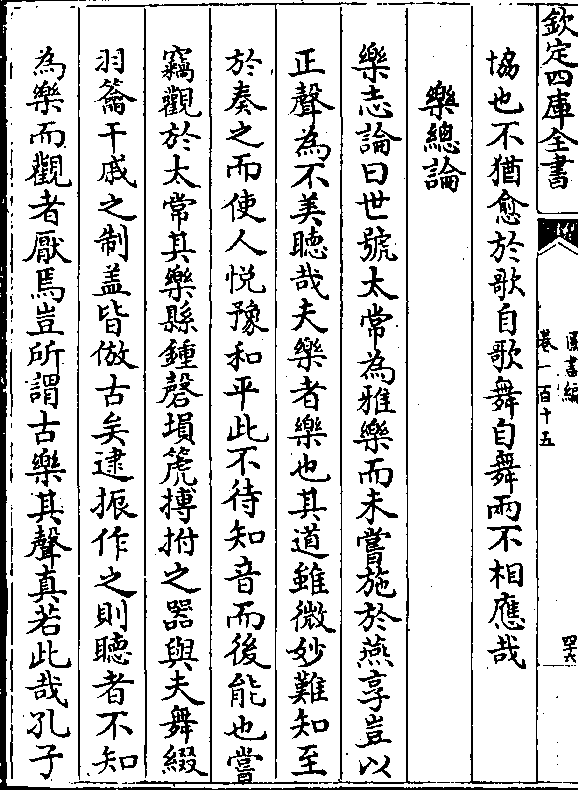 欽定四庫全書
圖書編
卷一百十五
四十六
協也不猶愈於歌自歌舞自舞兩不相應哉
樂總論
樂志論曰世號太常為雅樂而未嘗施於燕享豈以
正聲為不美聽哉夫樂者樂也其道雖微妙難知至
於奏之而使人悦豫和平此不待知音而後能也嘗
竊觀於太常其樂縣鍾磬塤箎搏拊之器與夫舞綴
羽籥干戚之制盖皆倣古矣逮振作之則聽者不知
為樂而觀者厭焉豈所謂古樂其聲真若此哉孔子